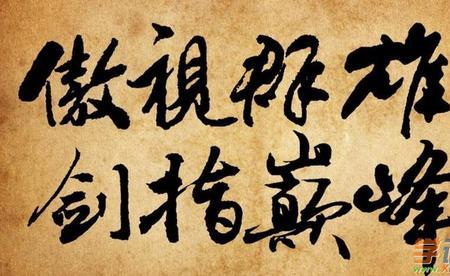 傲視群雄
剑指巅峰